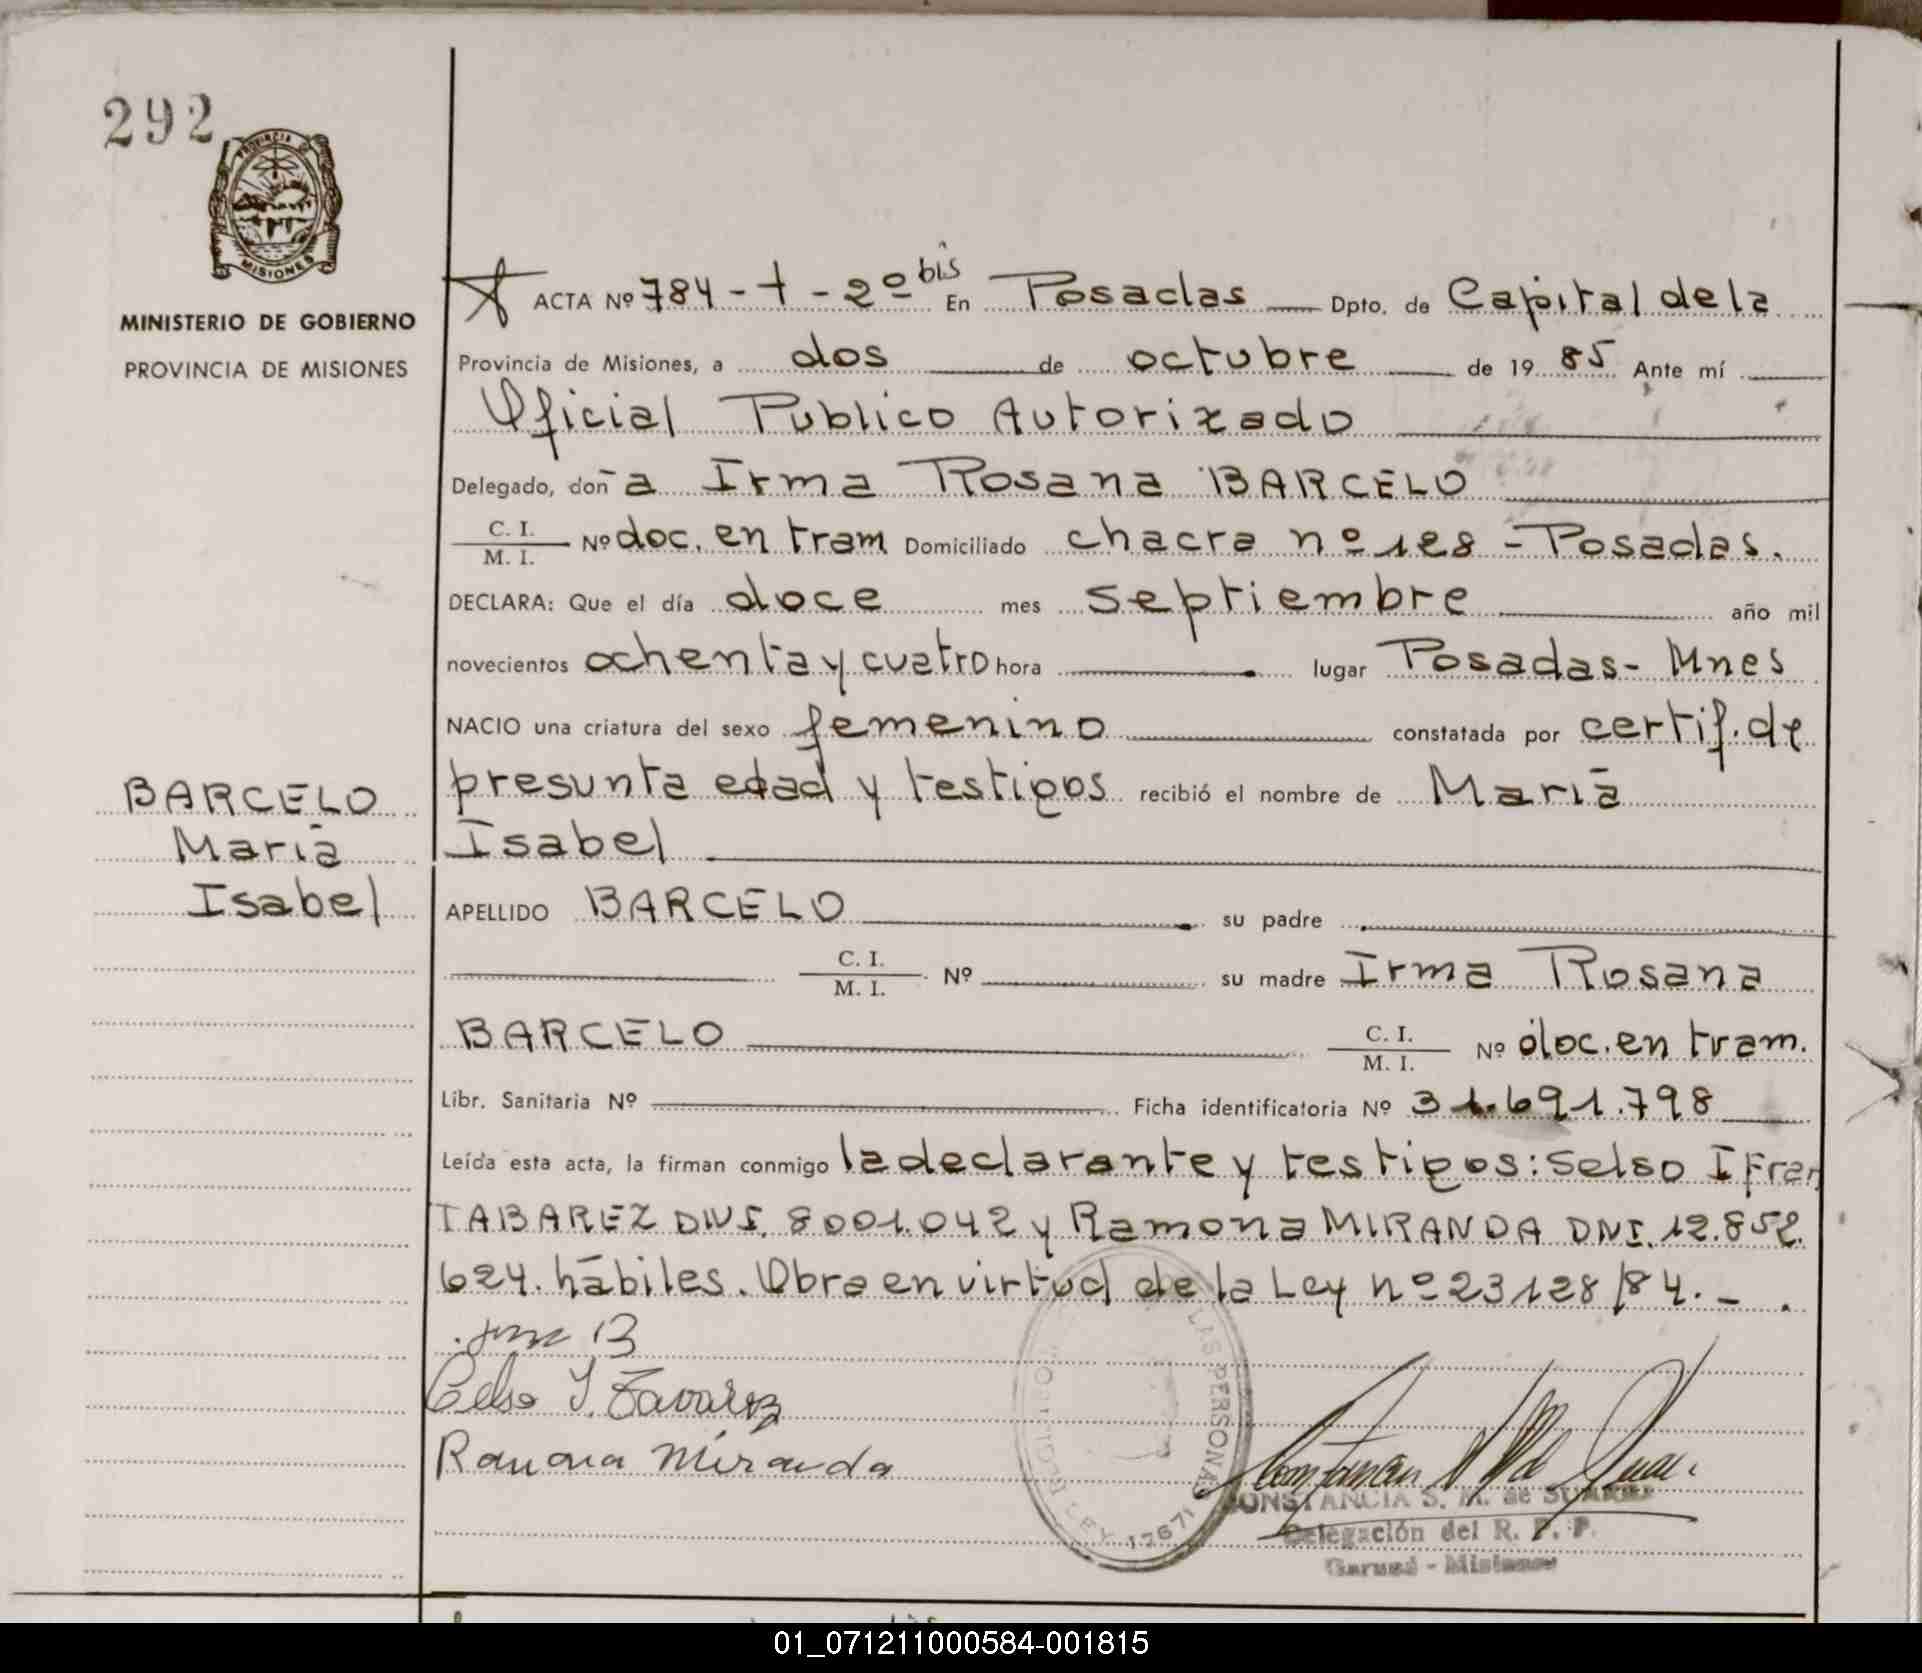 292
PROVINCIA DE
MISIONES
MINISTERIO DE GOBIERNO
PROVINCIA DE MISIONES
BARCELO
Maria
Isabel
ACTA Nº 784 - t - 2º bis En Posadas Dpto. de Capital dela
Provincia de Misiones, a dos de octubre de 19 85 Ante mí
Oficial Publico Autorizado
Delegado, doña Irma Rosana BARCELO
C. I.
M. I. Nº doc. en tram Domiciliado chacra nº 128 - Posadas.
DECLARA: Que el día doce mes septiembre año mil
novecientos ochenta y cuatro hora lugar Posadas - Mnes
NACIO una criatura del sexo femenino constatada por certif. de
presunta edad y testigos recibió el nombre de Maria
Isabel
APELLIDO BARCELO su padre
C. I.
M. I. Nº su madre Irma Rosana
BARCELO C. I.
M. I. Nº doc. en tram.
Libr. Sanitaria Nº Ficha identificatoria Nº 31.691.798
Leída esta acta, la firman conmigo la declarante y testigos: Selso I Fran
TABAREZ DNI. 8001.042 y Ramona MIRANDA DNI. 12.852.
624. hábiles. Obra en virtud de la Ley nº 23128/84. -
Celso I. Tavarez
Ramona Miranda
REGISTRO LAS PERSONAS
LEY 17671
CONSTANCIA S. M. de SUAREZ
Delegación del R. P. P.
Garupá - Misiones
01_071211000584-001815